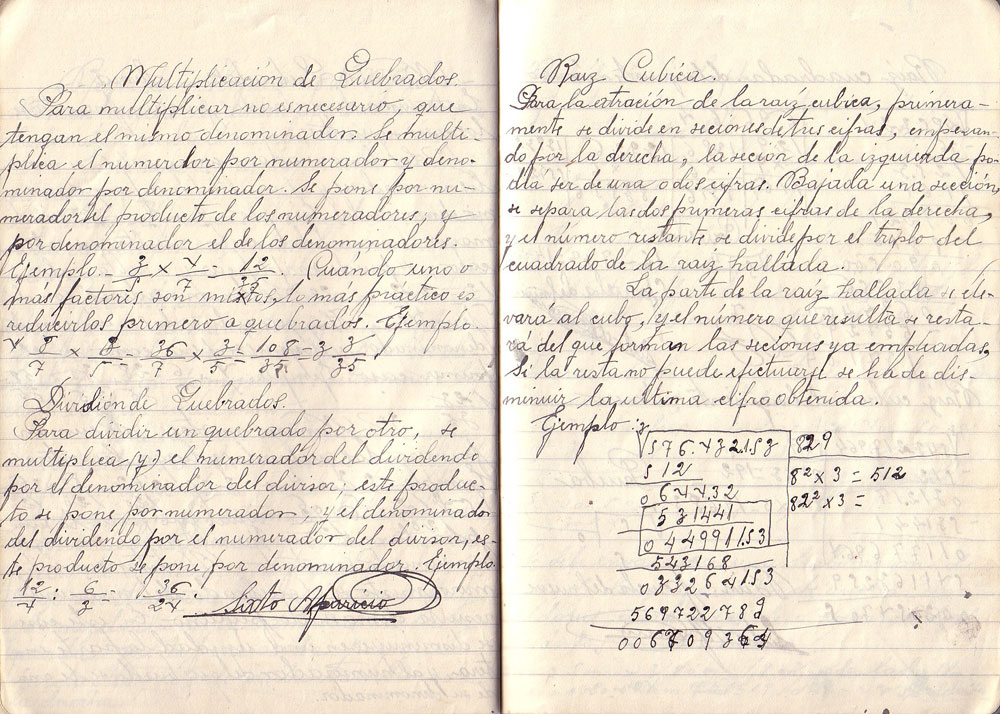 Multiplicación de Quebrados.
Para multiplicar no es necesario, que
tengan el mismo denominador. Se multi-
plica el numerdor por numerador y deno-
minador por denominador. Se pone por nu-
merador el producto de los numeradores, y
por denominador el de los denominadores.
Ejemplo.- 3/5 × 4/7 = 12/35. Cuándo uno o
más factores son mixtos, lo más practico es
reducirlos primero a quebrados. Ejemplo.
36/7 × 3/5 = 108/35 = 3 3/35
División de Quebrados.
Para dividir un quebrado por otro, se
multiplica (y) el numerador del dividendo
por el denominador del divisor; este produc-
to se pone por numerador, y el denominador
del dividendo por el numerador del divisor, es-
te producto se pone por denominador. Ejemplo.
12/4 : 6/3 = 36/24 Sixto Aparicio
Raiz Cubica.
Para la atración de la raíz cubica, primera-
mente se divide en seciones de tres cifras, empezan-
do por la derecha, la secion de la izquierda po-
drá ser de una o dos cifras. Bajada una sección,
se separa las dos primeras cifras de la derecha,
y el número restante se divide por el triplo del
cuadrado de la raiz hallada.
La parte de la raíz hallada se ele-
vará al cubo, y el número que resulta se resta-
rá del que forman las seciones ya empleadas,
Si la resta no puede efectuarse se ha de dis-
minuir la ultima cifra obtenida.
Ejemplo :
3√576.432.153 829
512 8² × 3 = 512
0 644.32 82² × 3 =
531441
0 44991.153
543168
033264153
569722789